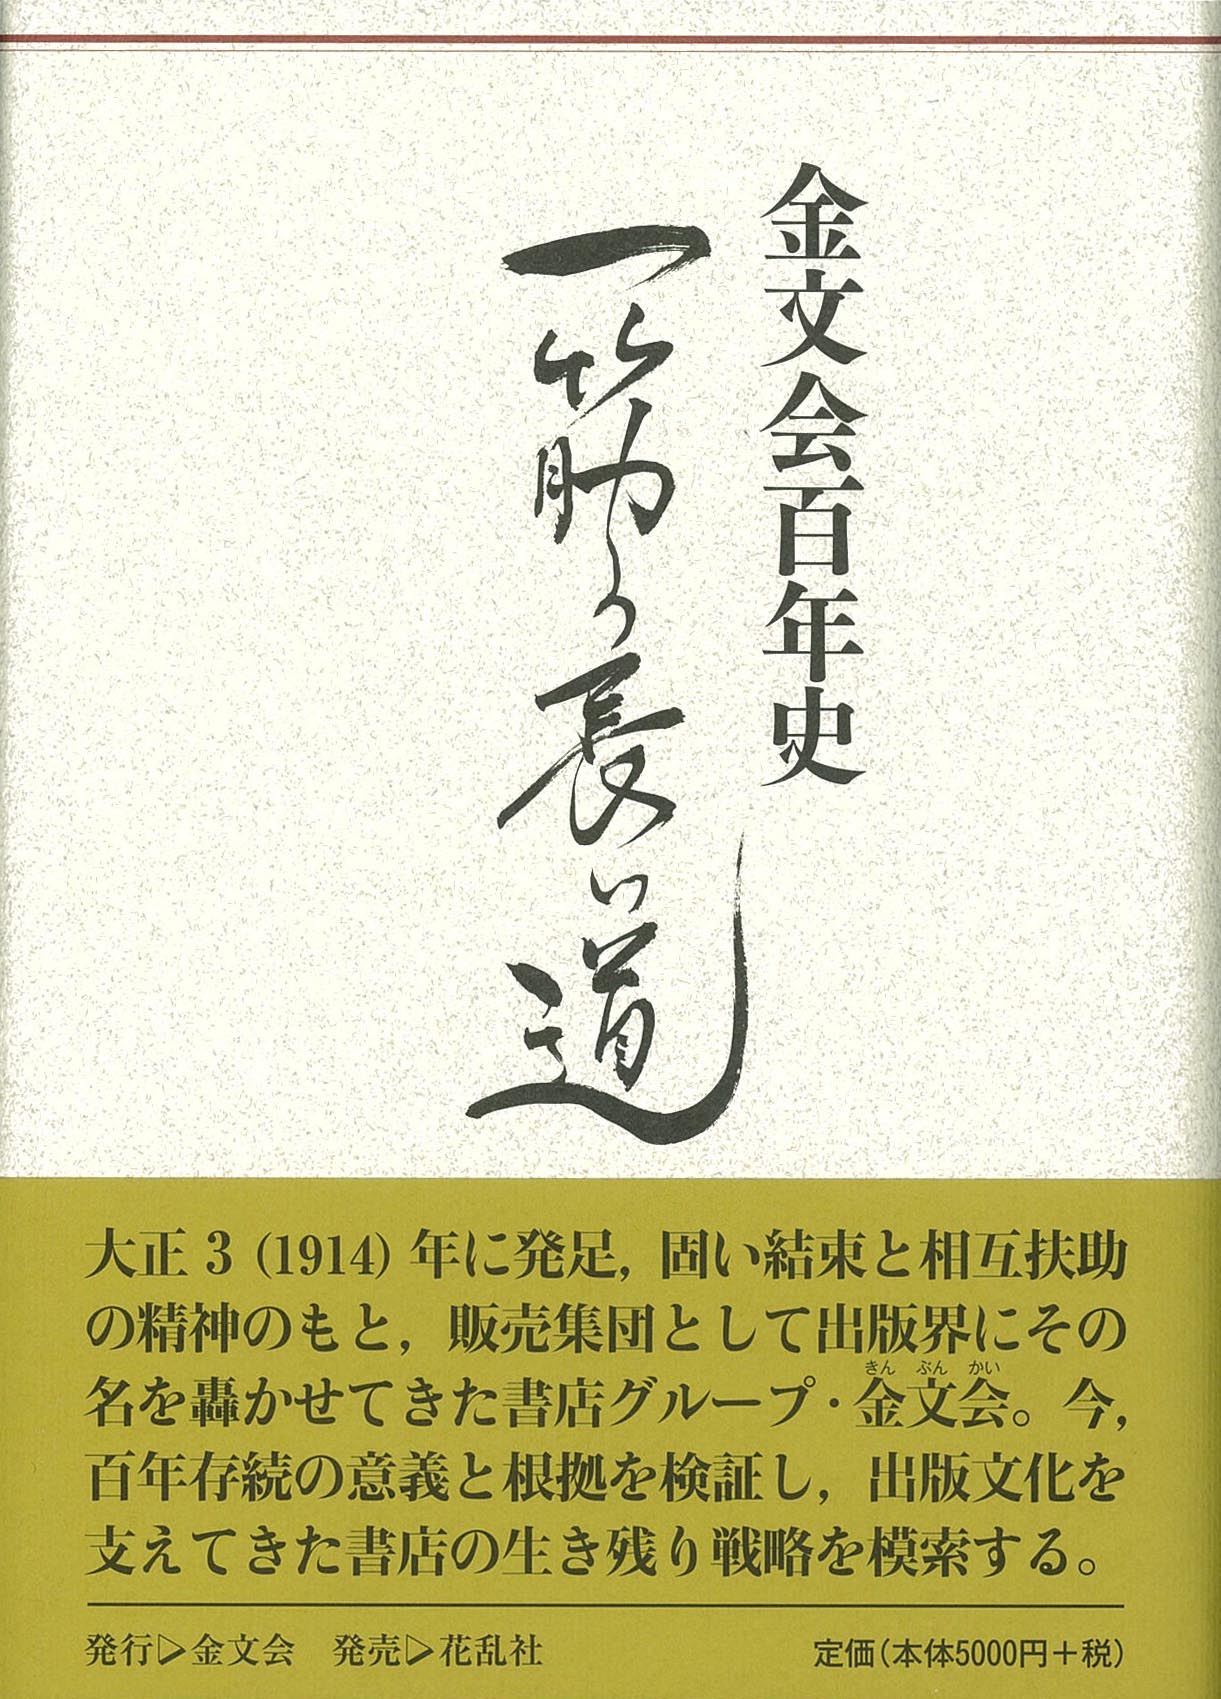 金文会百年史
一筋の長い道
大正3(1914)年に発足，固い結束と相互扶助
の精神のもと，販売集団として出版界にその
きんぶんかい
名を轟かせてきた書店グループ・金文会。今，
百年存続の意義と根拠を検証し，出版文化を
支えてきた書店の生き残り戦略を模索する。
発行▷金文会　発売▷花乱社
定価(本体5000円＋税)